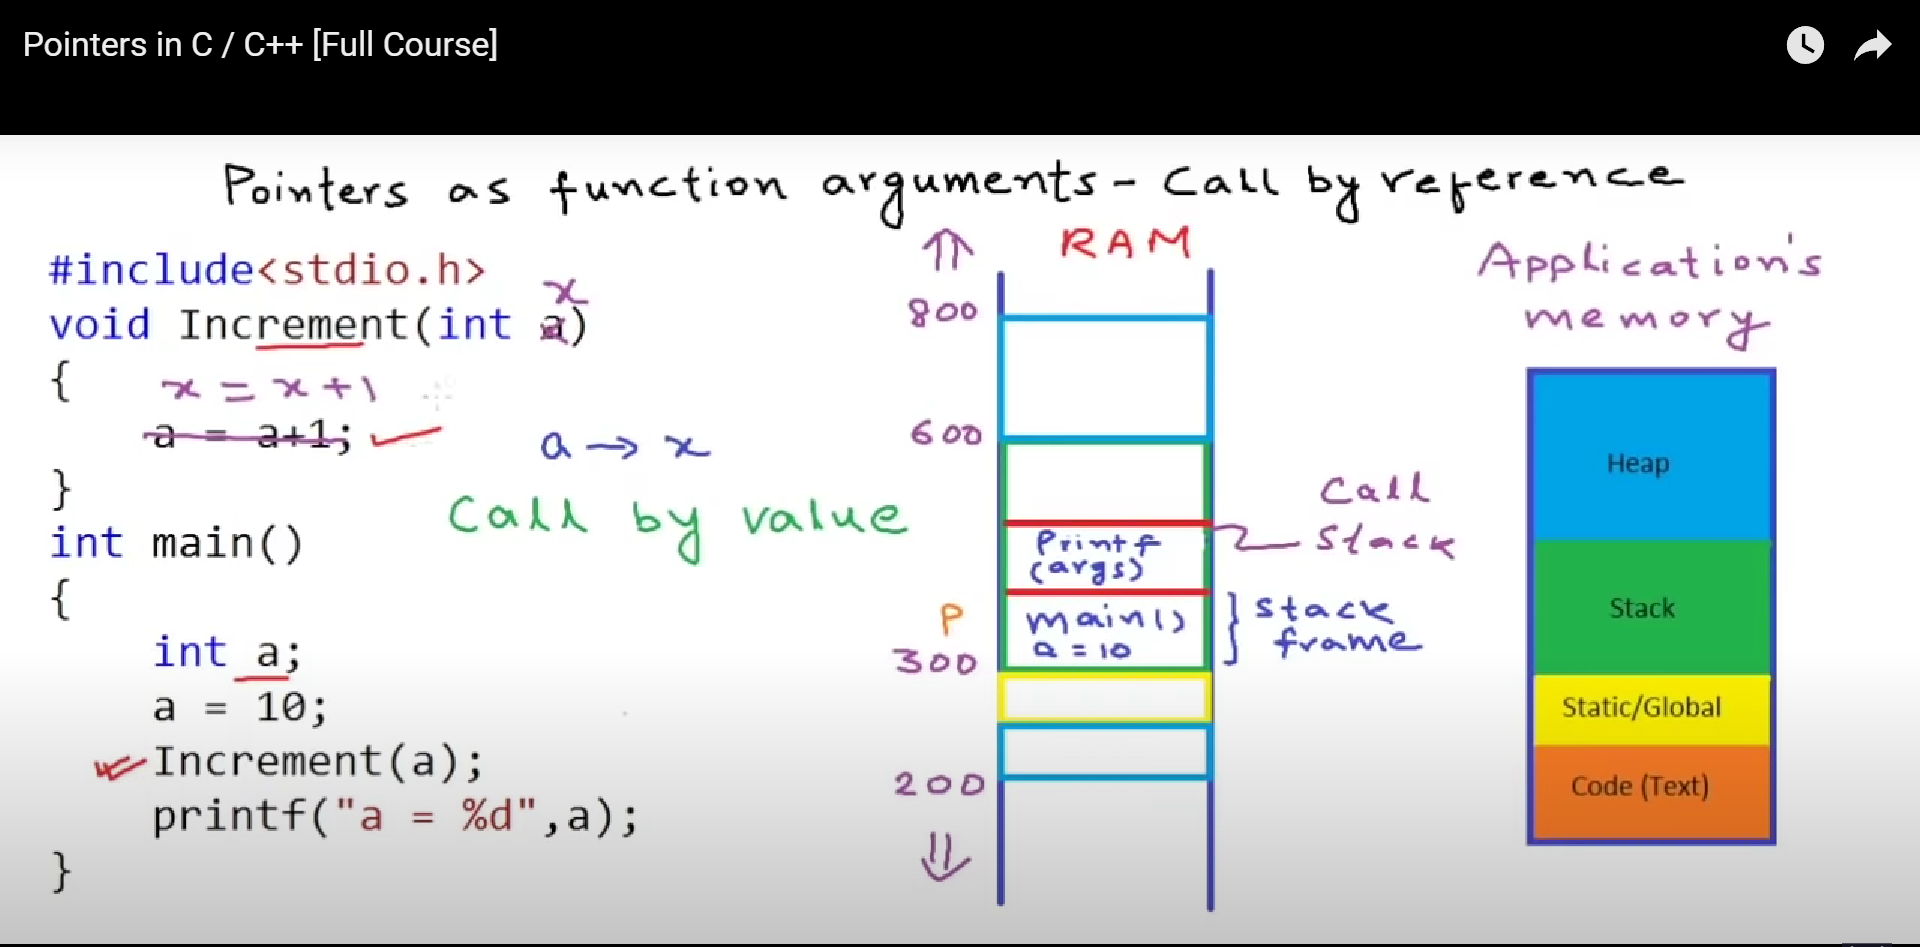 Pointers in C / C++ [Full Course]
Pointers as function arguments - Call by reference
#include<stdio.h>
x
void Increment(int a)
{
x = x + 1
a = a+1;
}
a → x
Call by value
int main()
{
int a;
a = 10;
Increment(a);
printf("a = %d",a);
}
RAM
800
600
P
300
200
Printf
(args)
main()
a = 10
Call
Stack
stack
frame
Application's
memory
Heap
Stack
Static/Global
Code (Text)